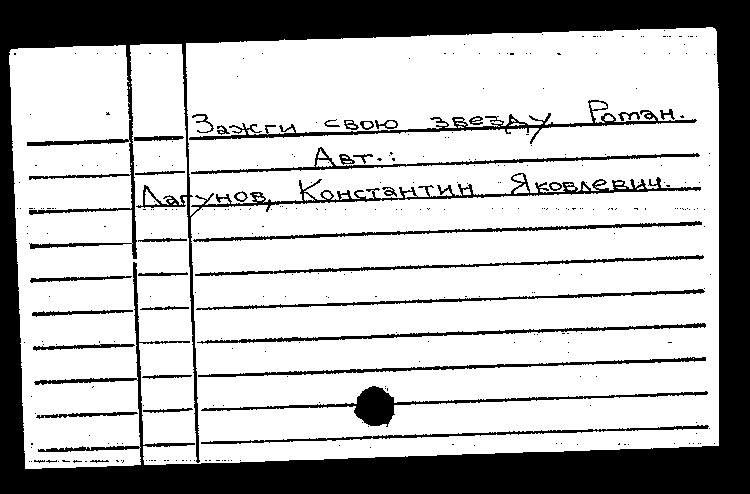 Зажги свою звезду Роман.
Авт.:
Лагунов, Константин Яковлевич.